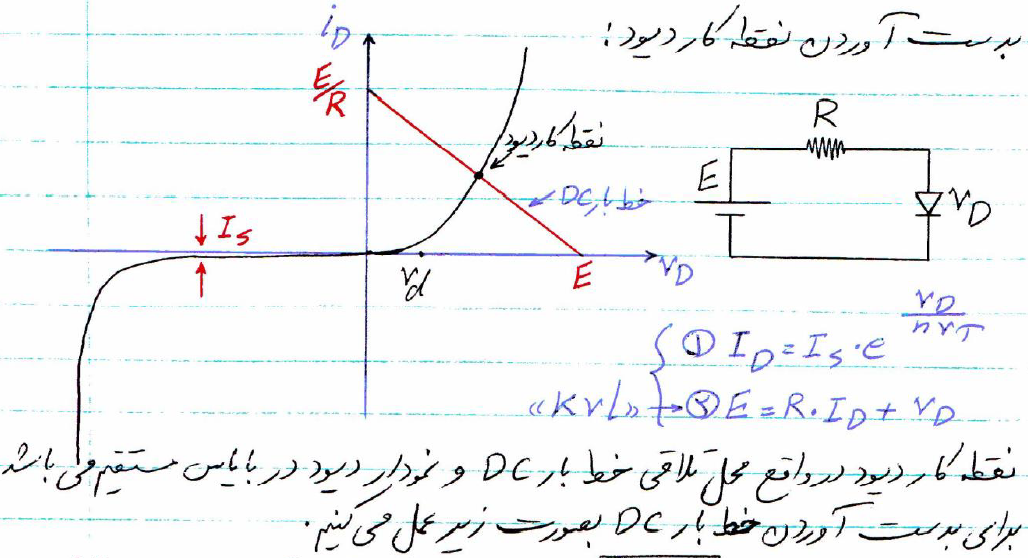 بدست آوردن نقطه کار دیود:
i_D
E/R
نقطه کار دیود
خط بار DC
I_s
v_d
E
v_D
R
E
v_D
① I_D = I_s · e^(v_D / n v_T)
«KVL» → ② E = R · I_D + v_D
نقطه کار دیود در واقع محل تلاقی خط بار DC و نمودار دیود در بایاس مستقیم می باشد
برای بدست آوردن خط بار DC بصورت زیر عمل می کنیم.